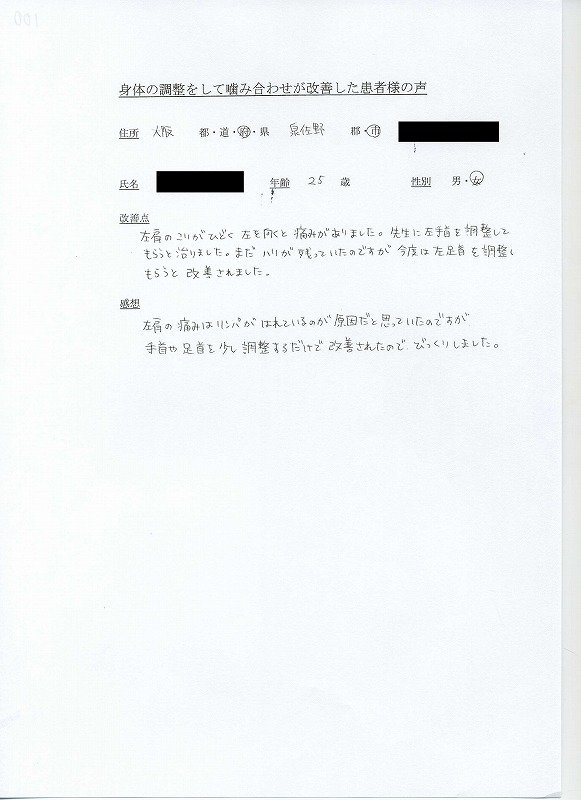 身体の調整をして噛み合わせが改善した患者様の声
住所 大阪 都・道・府・県 泉佐野 郡・市
氏名 年齢 25 歳 性別 男・女
改善点
左肩のこりがひどく左を向くと痛みがありました。先生に左手首を調整して
もらうと治りました。まだハリが残っていたのですが今度は左足首を調整し
もらうと改善されました。
感想
左肩の痛みはリンパがはれているのが原因だと思っていたのですが
手首や足首を少し調整するだけで改善されたので、びっくりしました。